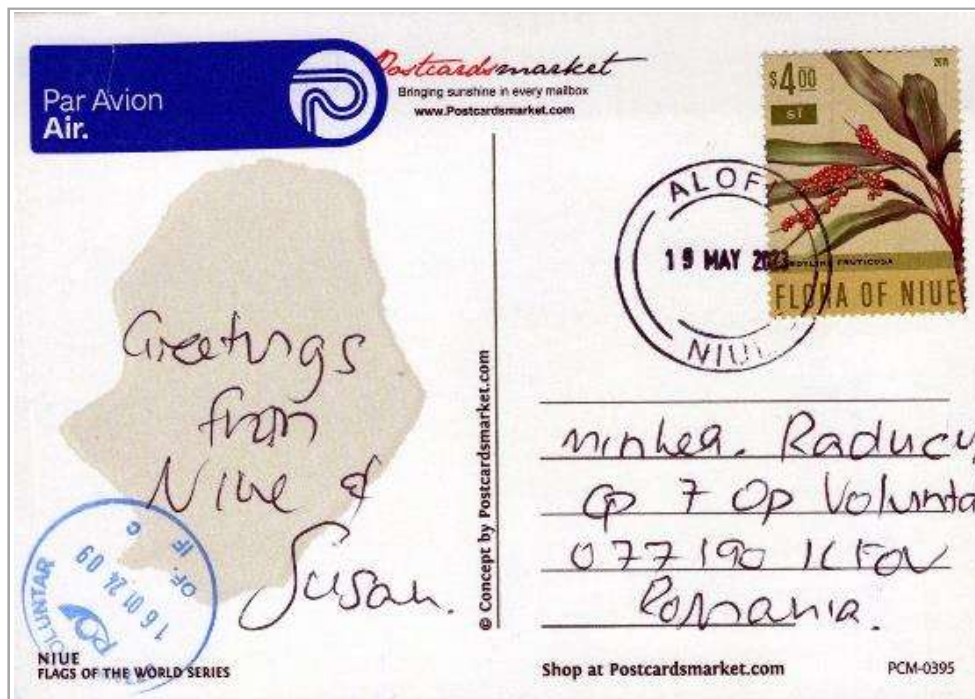 Par Avion
Air.
Postcardsmarket
Bringing sunshine in every mailbox
www.Postcardsmarket.com
$4.00
2015
SI
CORDYLINE FRUTICOSA
FLORA OF NIUE
ALOFI
19 MAY 2023
NIUE
Greetings
from
Niue &
Susan.
© Concept by Postcardsmarket.com
Minhea. Raducu
Cp 7 Op Volunta
077190 ILFOV
Romania.
VOLUNTARI
OF. IF C
16 01 24 09
NIUE
FLAGS OF THE WORLD SERIES
Shop at Postcardsmarket.com
PCM-0395